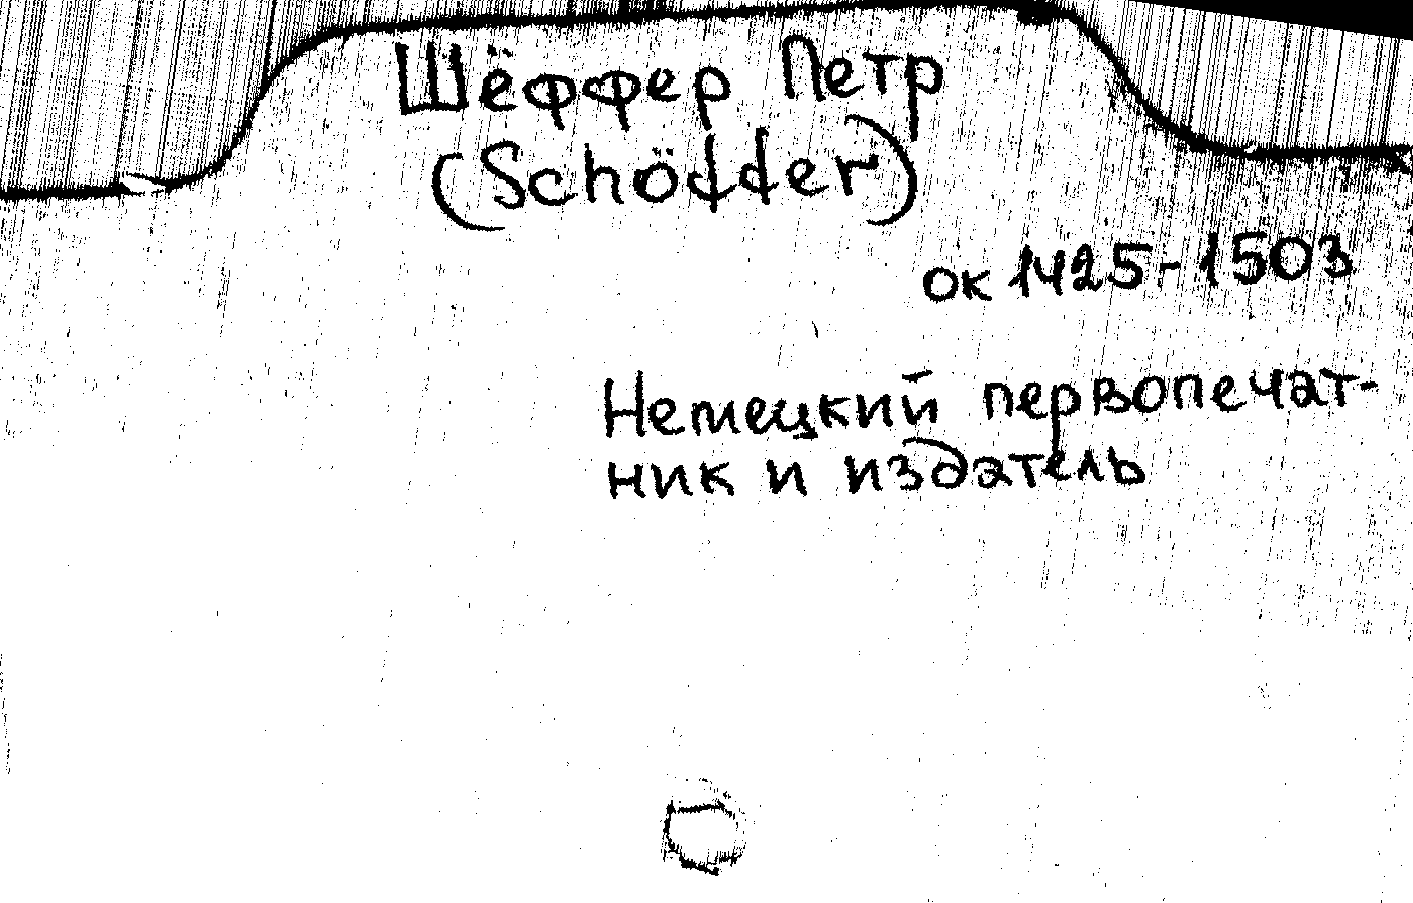 Шёффер Петр
(Schöffer)
ок 1425-1503
Немецкий первопечат-
ник и издатель